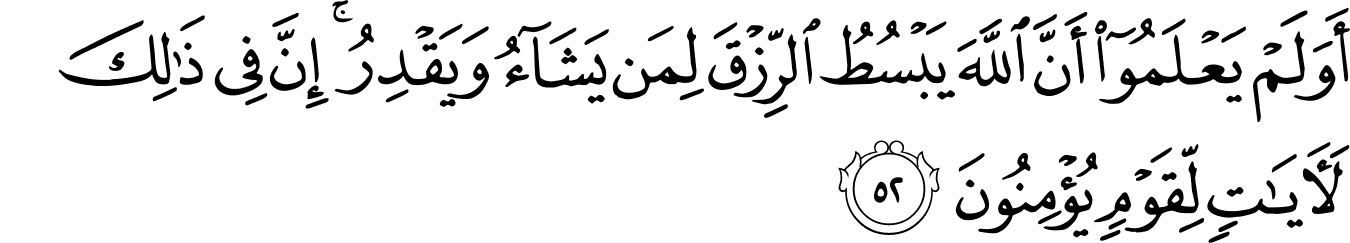 أَوَلَمْ يَعْلَمُوٓا۟ أَنَّ ٱللَّهَ يَبْسُطُ ٱلرِّزْقَ لِمَن يَشَآءُ وَيَقْدِرُ ۚ إِنَّ فِى ذَٰلِكَ
لَـَٔايَـٰتٍ لِّقَوْمٍ يُؤْمِنُونَ ٥٢